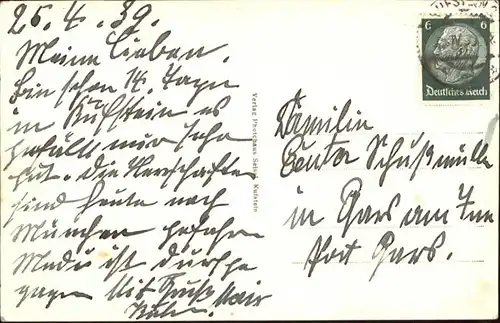 25. 4. 39.
Meine Lieben.
Bin schon 14. Tage
in Kufstein es
gefällt mir sehr
gut. Die Herrschaften
sind heute nach
München gefahren
ist durchge
gagen Mit Gruß
Familie
Schußmüller
in Gars am Inn
Post Gars.
6 6
Deutsches Reich
Verlag Photohaus Kufstein